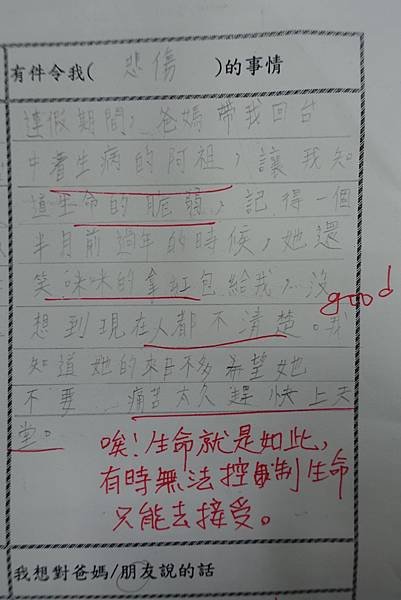 有件令我(悲傷)的事情
連假期間，爸媽帶我回台
中看生病的阿祖，讓我知
道生命的脆弱，記得一個
半月前過年的時候，她還
笑咪咪的拿紅包給我，沒
good
想到現在人都不清楚。我
知道她的來日不多希望她
不要 痛苦太久趕快上天
堂。
唉！生命就是如此，
有時無法控制生命
只能去接受。
我想對爸媽/朋友說的話